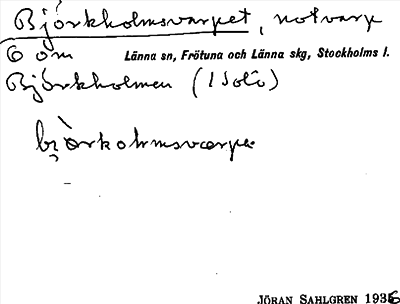 Björkholmsvarpet, notvarp
Ö om Länna sn, Frötuna och Länna skg, Stockholms l.
Björkholmen (Isola)
JÖRAN SAHLGREN 1936